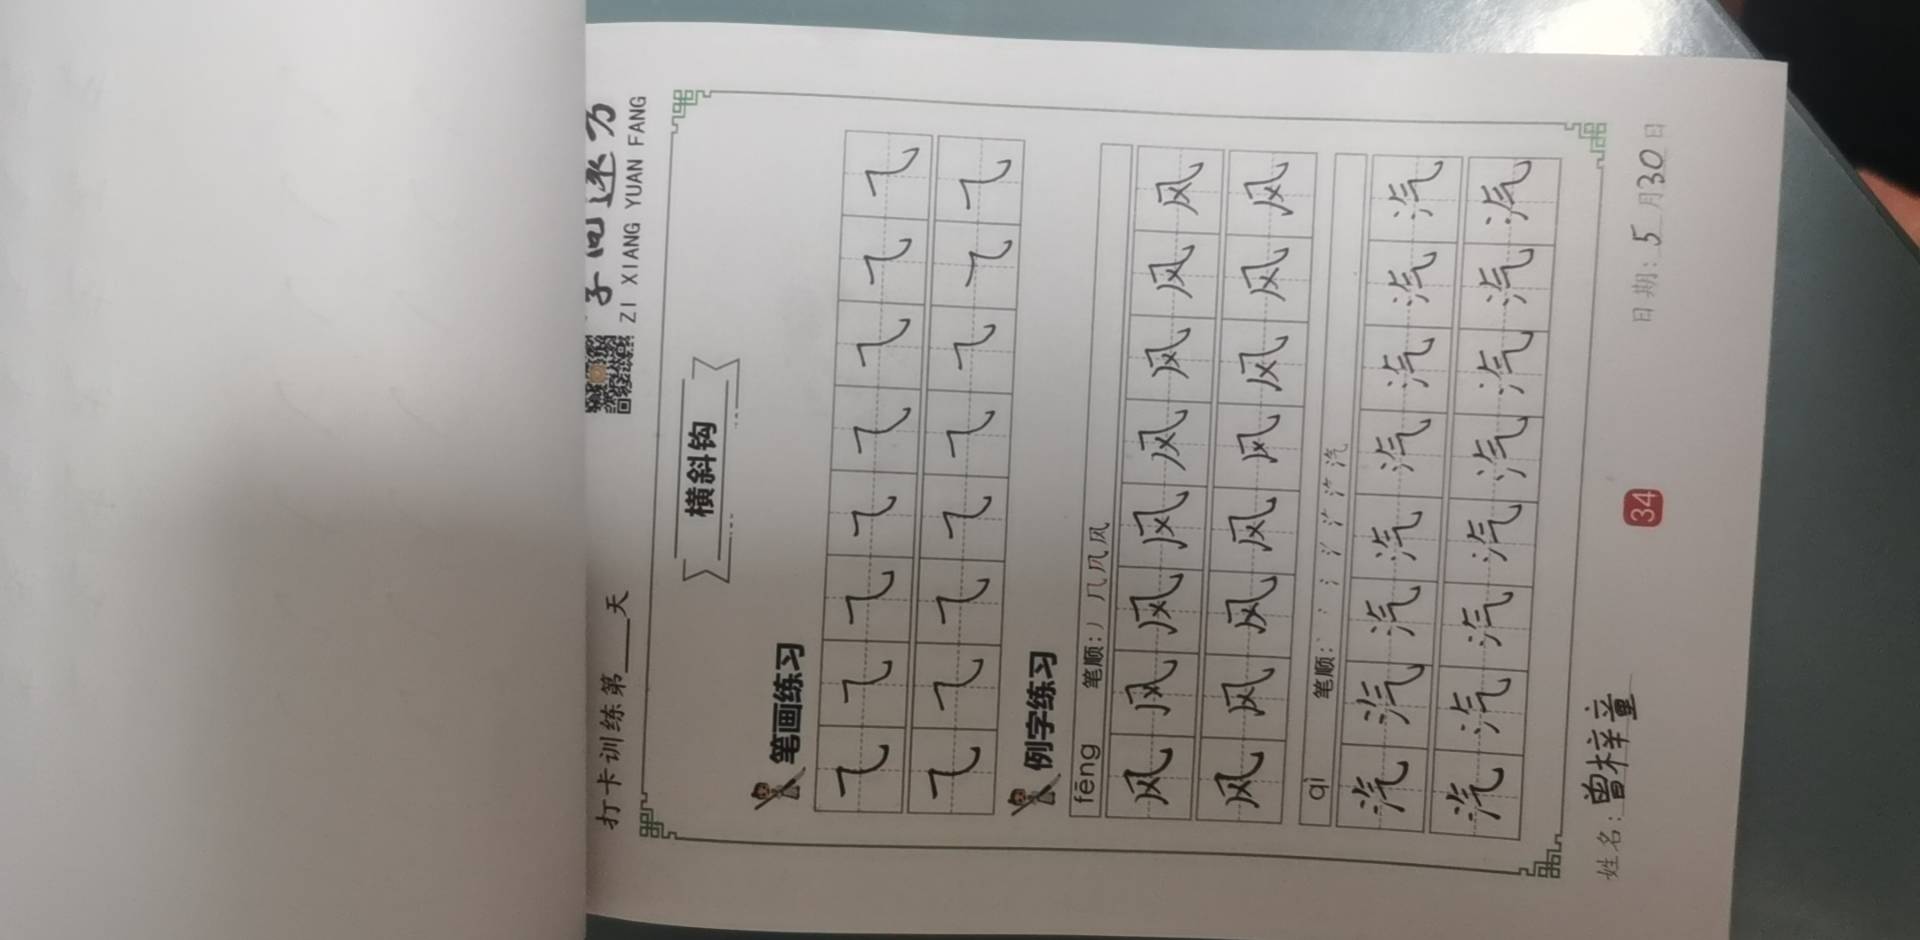 字向远方
ZI XIANG YUAN FANG
打卡训练第___天
横斜钩
笔画练习
㇈ ㇈ ㇈ ㇈ ㇈ ㇈ ㇈ ㇈
㇈ ㇈ ㇈ ㇈ ㇈ ㇈ ㇈ ㇈
例字练习
fēng 笔顺：丿 几 凡 风
风 风 风 风 风 风 风 风
风 风 风 风 风 风 风 风
qì 笔顺：丶 冫 氵 汽
汽 汽 汽 汽 汽 汽 汽 汽
汽 汽 汽 汽 汽 汽 汽 汽
姓名：曾梓童 日期：5月30日
34